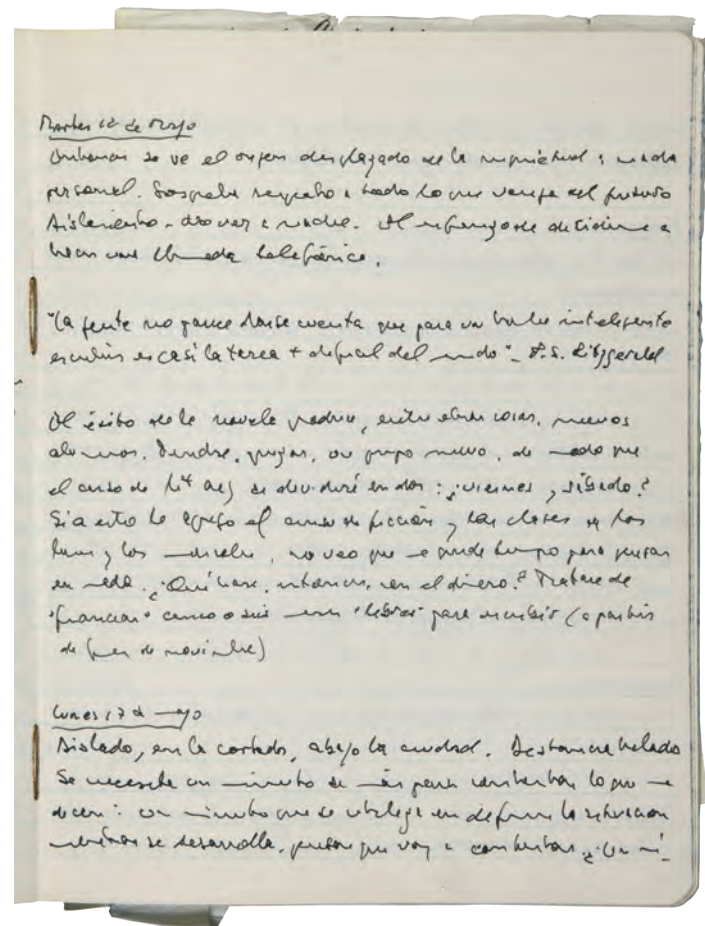 Martes 12 de Mayo
se ve el origen desplazado de la inquietud: nada
personal. respecto a todo lo que venga del futuro
Aislamiento - no ver a nadie. Al decidirme a
hacer una llamada telefónica.
"La gente no parece darse cuenta que para un inteligente
escribir es casi la tarea + difícil del mundo". - F.S. Fitzgerald
El éxito de la novela produce, entre otras cosas, nuevos
alumnos. Tendré, quizás, un grupo nuevo, de modo que
el curso de Lit arg se dividirá en dos: ¿viernes y sábado?
Si a esto le agrego el curso de ficción y las clases de los
lunes y los miércoles, no veo que me quede tiempo para pensar
en nada. ¿Qué haré, entonces, con el dinero? Trataré de
"financiar" cinco o seis meses "libres" para escribir (a partir
de fines de noviembre)
Lunes 17 de mayo
Aislado, en la cortada, abajo la ciudad. Distancia helada
Se necesita un minuto de más para contestar lo que me
dicen: un minuto que se utiliza en definir la situación
mientras se desarrolla, pensar que voy a contestar. ¿Un mi-